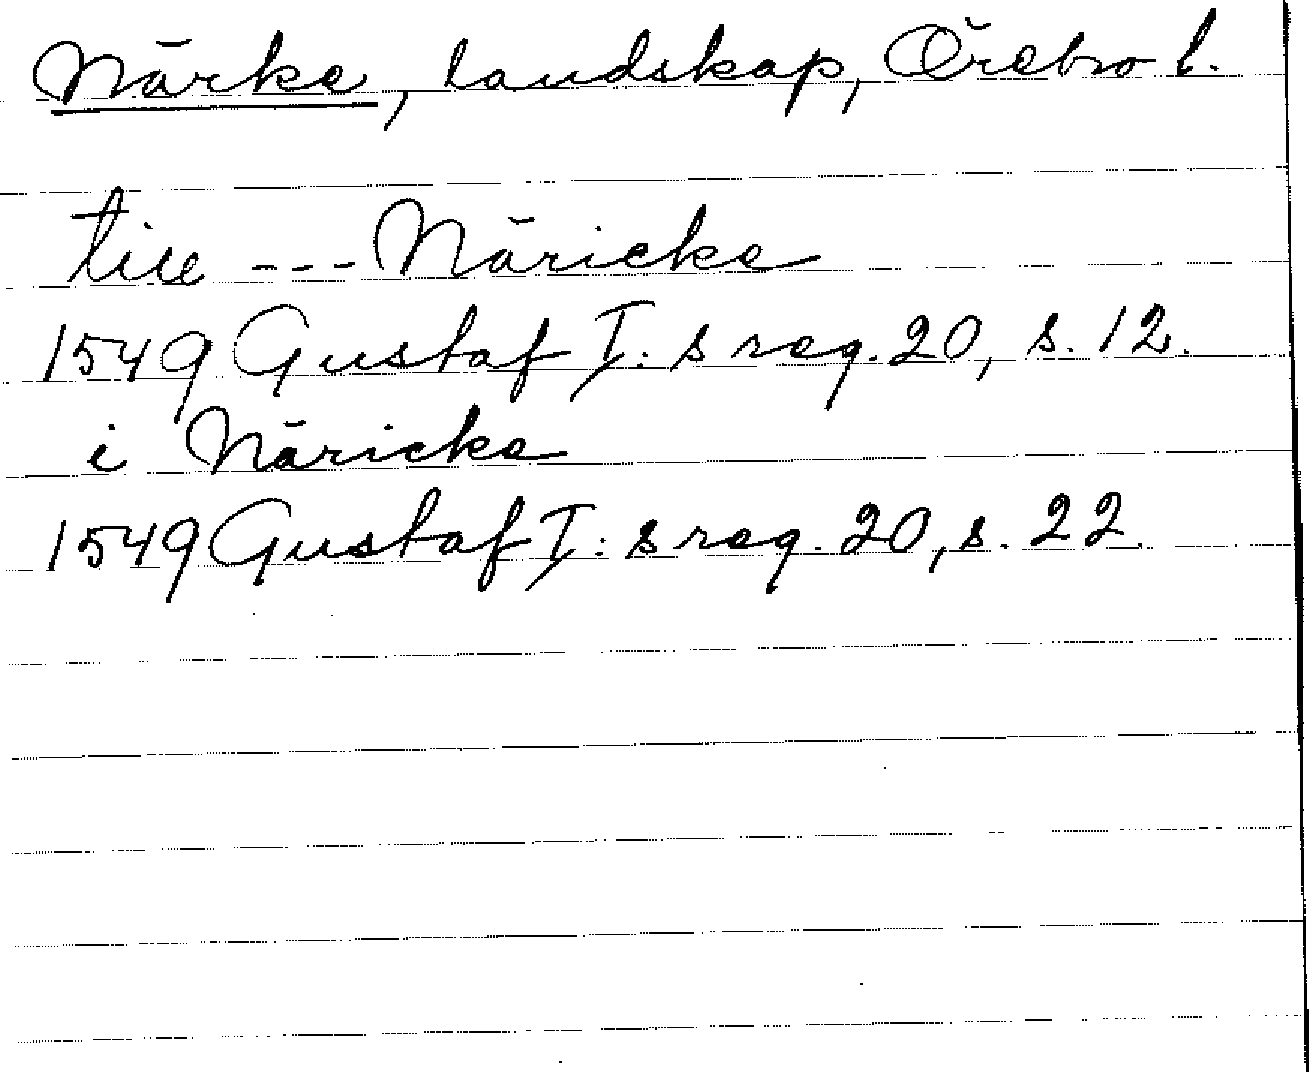 Närke, landskap, Örebro l.
till --- Näricke
1549 Gustaf I:s reg. 20, s. 12.
i Näricke
1549 Gustaf I:s reg. 20, s. 22.